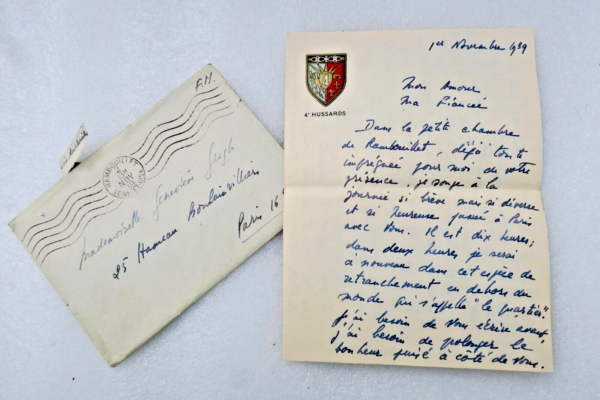 F.M.
RAMBOUILLET
Mademoiselle Geneviève Gregh
25 Hameau Boulainvilliers
Paris 16e
4e HUSSARDS
1er Novembre 1939
Mon Amour
Ma Fiancée
Dans la petite chambre
de Rambouillet, déjà toute
imprégnée pour moi de votre
présence, je songe à la
journée si brève mais si diverse
et si heureuse passée à Paris
avec Vous. Il est dix heures;
dans deux heures je serai
à nouveau dans cet espèce de
retranchement en dehors du
monde qui s'appelle "le quartier".
j'ai besoin de Vous écrire avant,
j'ai besoin de prolonger le
bonheur puisé à côté de Vous.